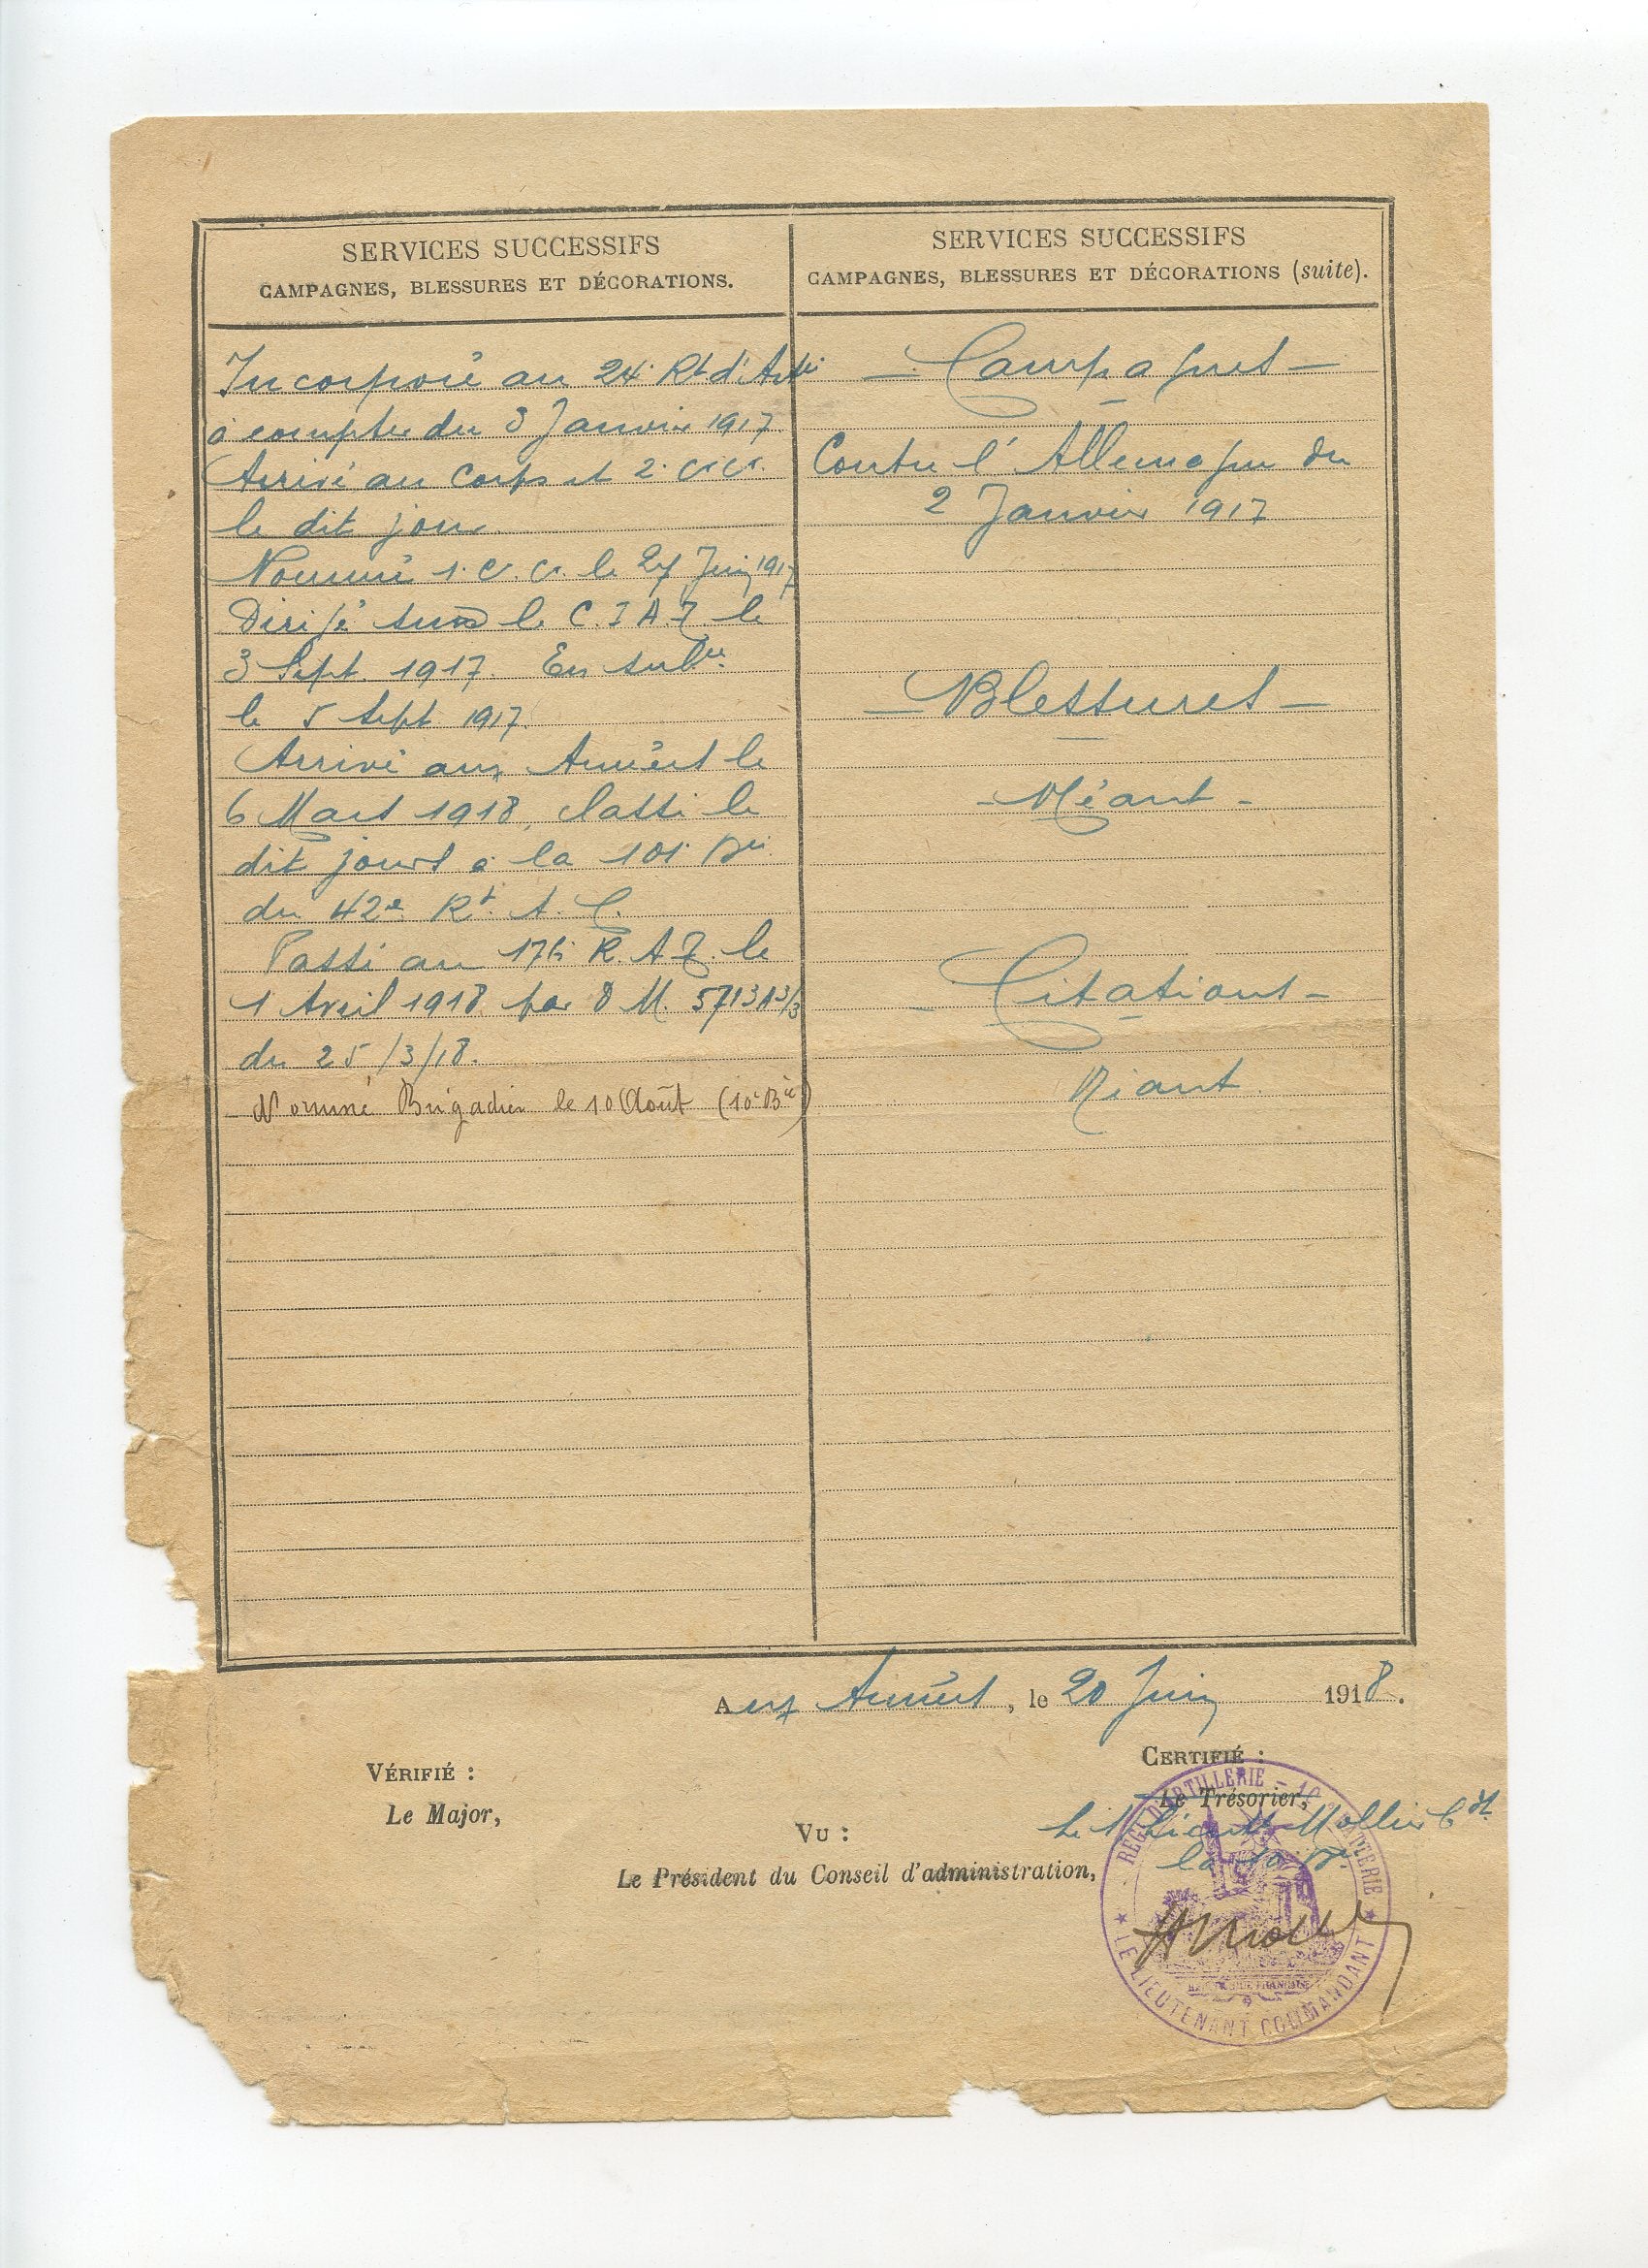 SERVICES SUCCESSIFS
CAMPAGNES, BLESSURES ET DÉCORATIONS.
Incorporé au 24e Rt d'Artie
à compter du 3 Janvier 1917
Arrivé au Corps et 2e C. C.
le dit jour
Nommé 1e C. C. le 27 Juin 1917
Dirigé sur le C. I A. T le
3 Sept. 1917. En sub
le 5 Sept. 1917.
Arrivé aux Armées le
6 Mars 1918, classé le
dit jour à la 101e Bie
du 42e Rt. A. C.
Passé au 176e R. A. T. le
1 Avril 1918 par D M. 5713 A 3/3
du 25/3/18.
Nommé Brigadier le 10 Août (10e Bie)
SERVICES SUCCESSIFS
CAMPAGNES, BLESSURES ET DÉCORATIONS (suite).
- Campagnes -
Contre l'Allemagne du
2 Janvier 1917
- Blessures -
- Néant -
- Citations -
Néant
Aux Armées, le 20 Juin 1918.
VÉRIFIÉ :
Le Major,
VU :
Le Président du Conseil d'administration,
CERTIFIÉ :
Le Trésorier,
Le Lieutt Mollier Cdt
la 10 Bie
LE LIEUTENANT COMMANDANT